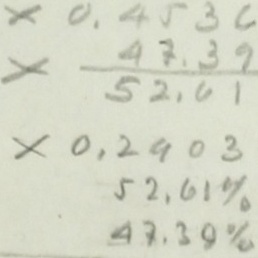 × 0.4536
× 47.39
52.61
× 0.2903
52.61%
47.39%